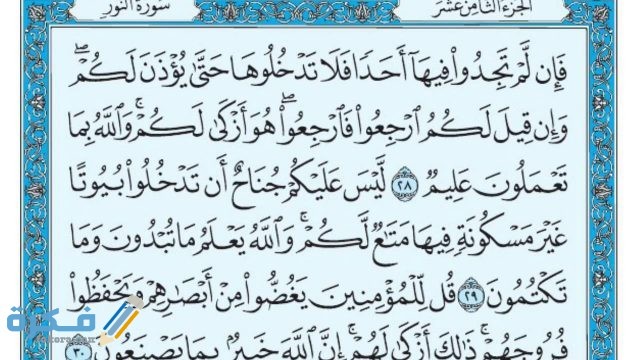 الجزء الثامن عشر
سورة النور
فَإِن لَّمْ تَجِدُوا۟ فِيهَآ أَحَدًا فَلَا تَدْخُلُوهَا حَتَّىٰ يُؤْذَنَ لَكُمْ ۖ
وَإِن قِيلَ لَكُمُ ٱرْجِعُوا۟ فَٱرْجِعُوا۟ ۖ هُوَ أَزْكَىٰ لَكُمْ ۚ وَٱللَّهُ بِمَا
تَعْمَلُونَ عَلِيمٌ ٢٨ لَّيْسَ عَلَيْكُمْ جُنَاحٌ أَن تَدْخُلُوا۟ بُيُوتًا
غَيْرَ مَسْكُونَةٍ فِيهَا مَتَـٰعٌ لَّكُمْ ۚ وَٱللَّهُ يَعْلَمُ مَا تُبْدُونَ وَمَا
تَكْتُمُونَ ٢٩ قُل لِّلْمُؤْمِنِينَ يَغُضُّوا۟ مِنْ أَبْصَـٰرِهِمْ وَيَحْفَظُوا۟
فُرُوجَهُمْ ۚ ذَٰلِكَ أَزْكَىٰ لَهُمْ ۗ إِنَّ ٱللَّهَ خَبِيرٌۢ بِمَا يَصْنَعُونَ ٣٠
فكرة